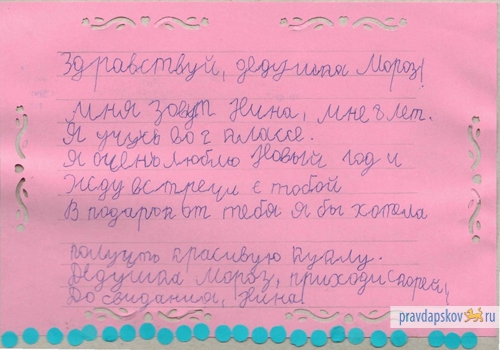 Здравствуй, дедушка Мороз!
мня зовут Нина, мне 8 лет.
Я учусь во 2 классе.
Я очень люблю Новый год и
жду встречи с тобой
В подарок от тебя я бы хотела
получить красивую куклу.
Дедушка Мороз, приходи скорей!
До свидания, Нина.
pravdapskov ru